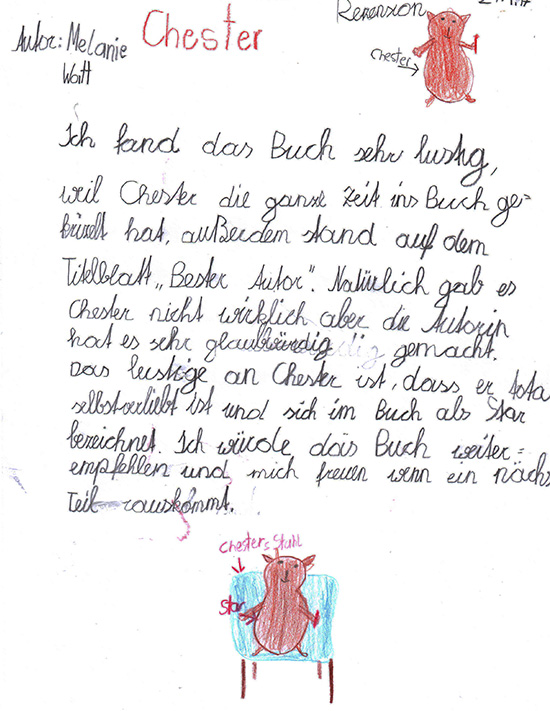 Rezension
Autor: Melanie
Watt
Chester
Chester
Ich fand das Buch sehr lustig,
weil Chester die ganze Zeit ins Buch ge-
kritzelt hat, außerdem stand auf dem
Titelblatt „Bester Autor". Natürlich gab es
Chester nicht wirklich aber die Autorin
hat es sehr glaubwürdig gemacht.
Das lustige an Chester ist, dass er tota
selbstverliebt ist und sich im Buch als Star
bezeichnet. Ich würde das Buch weiter=
empfehlen und mich freuen wenn ein nächs
Teil rauskommt.
Chesters Stuhl
Star